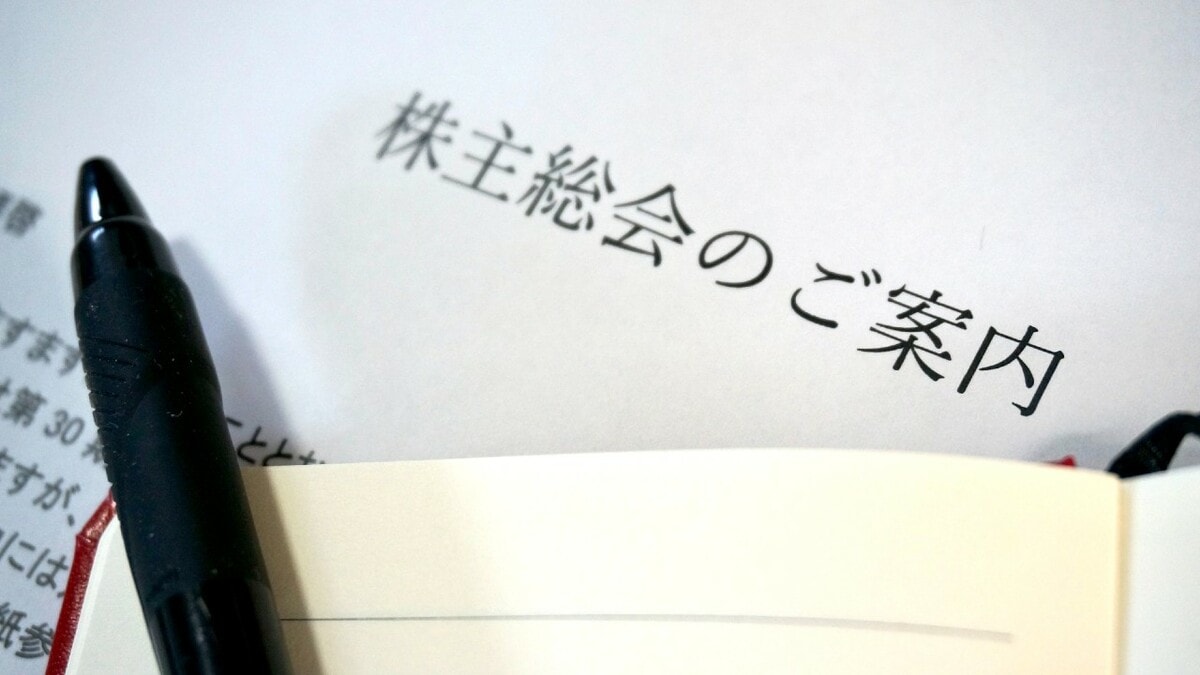 株主総会のご案内
啓
すます
第30
こととな
ますが、
には
紙参